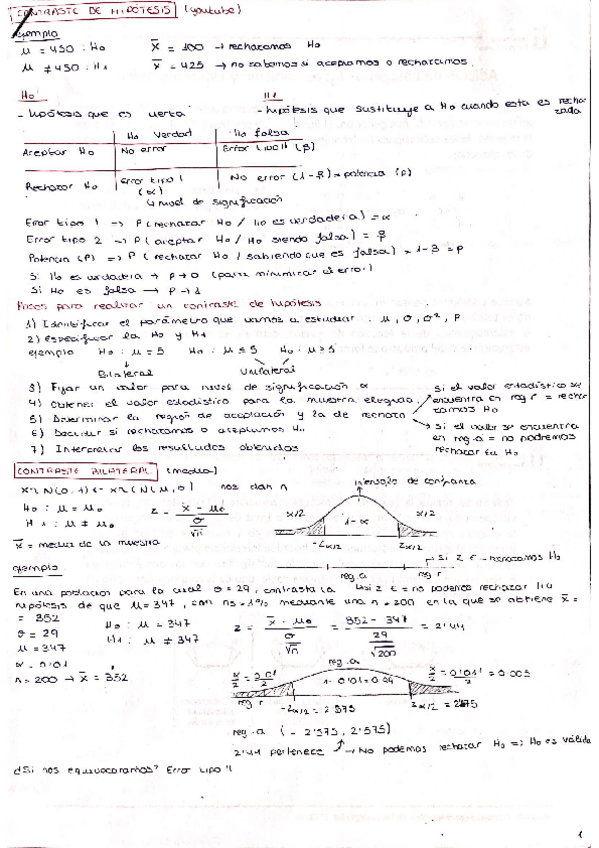 CONTRASTE DE HIPÓTESIS (youtube)
ejemplo
μ = 450 : H₀    x̄ = 100 → rechazamos H₀
μ ≠ 450 : H₁    x̄ = 425 → no sabemos si aceptamos o rechazamos.
H₀    H₁
- hipótesis que es cierta    - hipótesis que sustituye a H₀ cuando esta es rechazada
H₀ verdad    H₀ falsa
Aceptar H₀    No error    Error tipo II (β)
Rechazar H₀    Error tipo I (α)    No error (1-β) = potencia (P)
↳ nivel de significación
Error tipo 1 → P(rechazar H₀ / H₀ es verdadera) = α
Error tipo 2 → P(aceptar H₀ / H₀ siendo falsa) = β
Potencia (P) => P(rechazar H₀ / sabiendo que es falsa) = 1-β = P
Si H₀ es verdadera → p→0 (para minimizar el error)
Si H₀ es falsa → P→1
Pasos para realizar un contraste de hipótesis
1) Identificar el parámetro que vamos a estudiar. μ, σ, σ², P
2) especificar la H₀ y H₁
ejemplo H₀ : μ = 5    H₀ : μ ≤ 5    H₀ : μ ≥ 5
Bilateral    Unilateral
3) Fijar un valor para niveles de significación α
4) Obtener el valor estadístico para la muestra elegida
5) Determinar la región de aceptación y la de rechazo
si el valor estadístico se encuentra en reg r = rechazamos H₀
si el valor se encuentra en reg.a = no podremos rechazar la H₀
6) Decidir si rechazamos o aceptamos H₀
7) Interpretar los resultados obtenidos
CONTRASTE BILATERAL (media)
nos dan n
H₀ : μ = μ₀
H₁ : μ ≠ μ₀
z = (x̄ - μ₀) / (σ/√n)
x̄ = media de la muestra
intervalo de confianza
α/2    1-α    α/2
-zα/2    zα/2
reg.a    reg r
si z ∈ - rechazamos H₀
si z ∈ = no podemos rechazar H₀
ejemplo
En una población para la cual σ = 29, contrasta la
hipótesis de que μ = 347, con ns = 1% mediante una n = 200 en la que se obtiene x̄ =
= 352
σ = 29
μ = 347
α = 0'01
n = 200 → x̄ = 352
H₀ : μ = 347
H₁ : μ ≠ 347
z = (x̄ - μ₀) / (σ/√n) = (352 - 347) / (29/√200) = 2'44
reg.a
α/2 = 0'01/2    1-0'01 = 0'99    α/2 = 0'01/2 = 0'005
reg r    -zα/2 = 2'575    zα/2 = 2'575
reg.a (-2'575, 2'575)
2'44 pertenece → No podemos rechazar H₀ => H₀ es válida
¿Si nos equivocáramos? Error tipo II
1